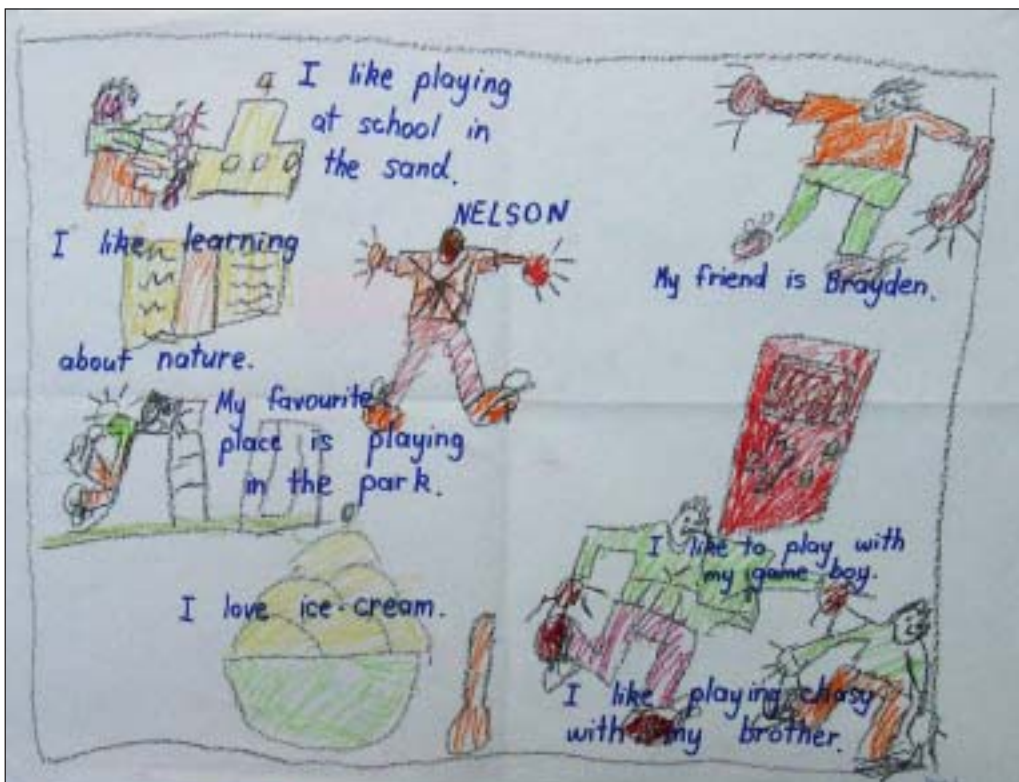 I like playing
at school in
the sand.
NELSON
I like learning
about nature.
My favourite
place is playing
in the park.
I love ice-cream.
My friend is Brayden.
I like to play with
my game boy.
I like playing chasy
with my brother.